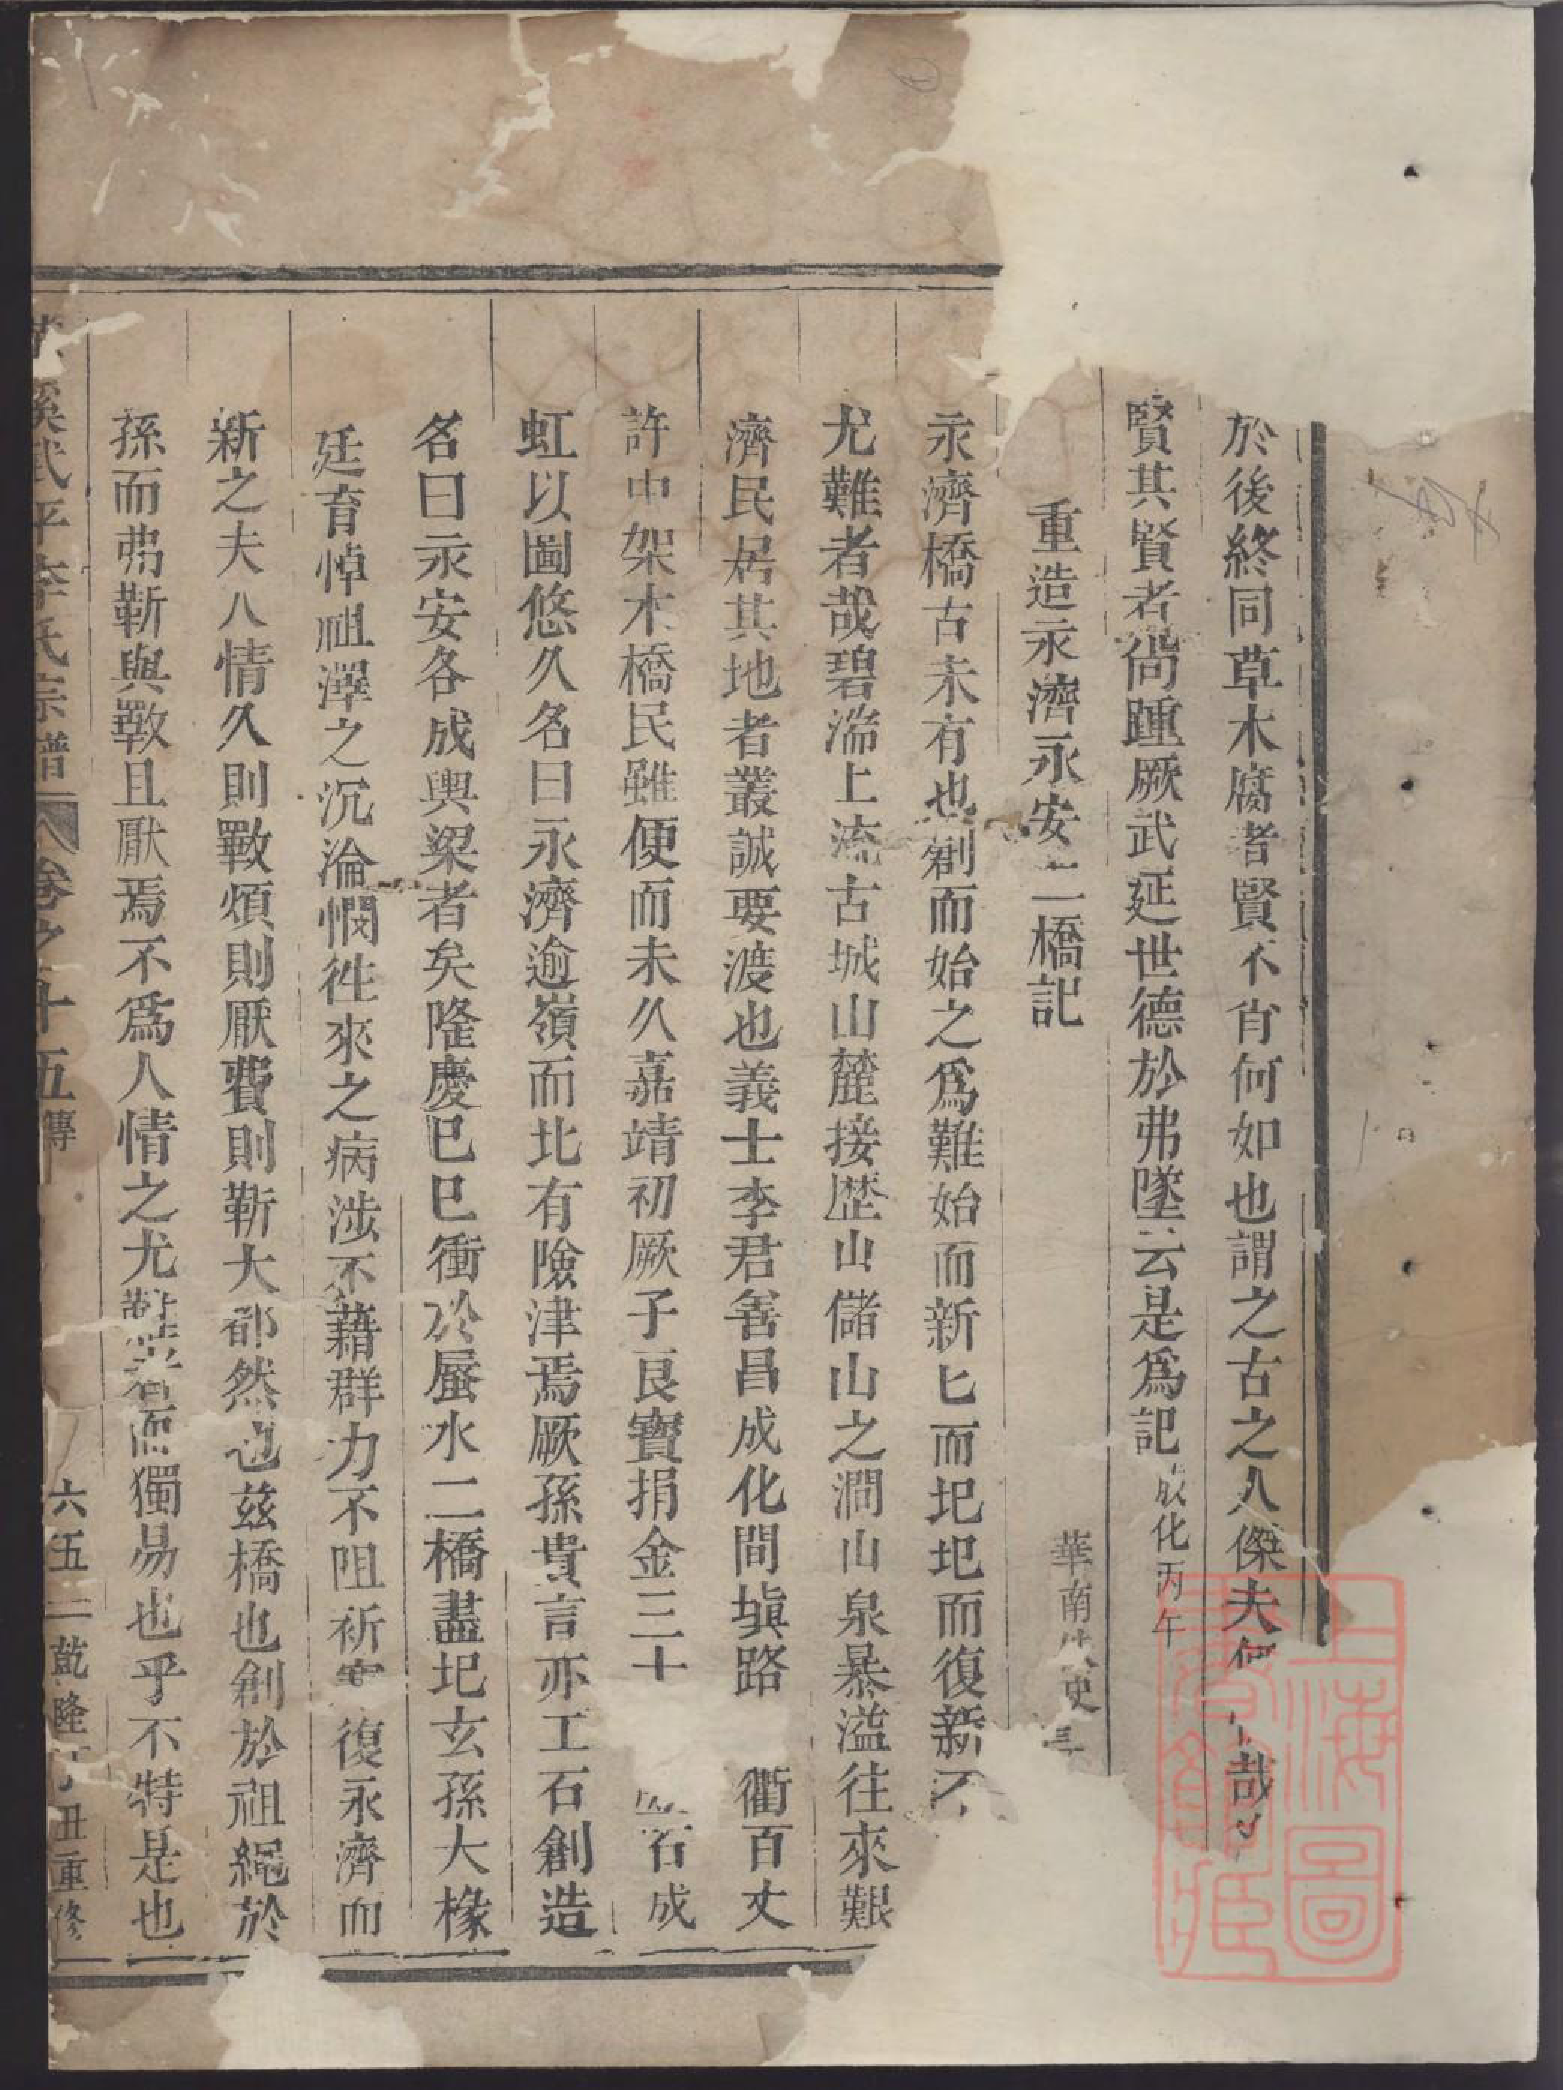 於後終同草木腐者賢不肖何如也謂之古之人傑夫何哉
賢其賢者尚踵厥武延世德於弗墜云是為記成化丙午
重造永濟永安二橋記
華南史三
永濟橋古未有也創而始之為難始而新匕而圯圯而復新不
尤難者哉碧湍上流古城山麓接歴山儲山之澗山泉暴溢往來艱
濟民居其地者叢誠要渡也義士李君善昌成化間塡路衢百丈
許中架木橋民雖便而未久嘉靖初厥子良寶捐金三十石成
虹以圖悠久名曰永濟逾嶺而北有險津焉厥孫貴言亦工石創造
名曰永安各成輿梁者矣隆慶巳巳衝於蜃水二橋盡圯玄孫大椽
廷育悼祖澤之沉淪憫徃來之病涉不藉群力不阻祈寒復永濟而
新之夫人情久則斁煩則厭費則靳大都然也兹橋也創於祖繩於
孫而弗靳與斁且厭焉不為人情之尤難者而獨易也乎不特是也
溪武平李氏宗譜 卷之十五 傳 六五二 乾隆丁丑重修
上海圖書館藏